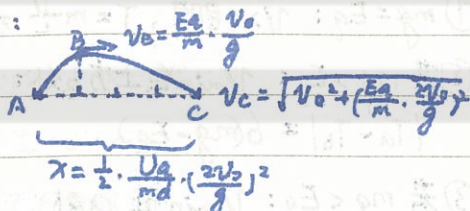 :
B v_B = Eq/m · v_0/g
A C v_C = √(v_0² + (Eq/m · 2v_0/g)²)
x = 1/2 · Uq/md · (2v_0/g)²